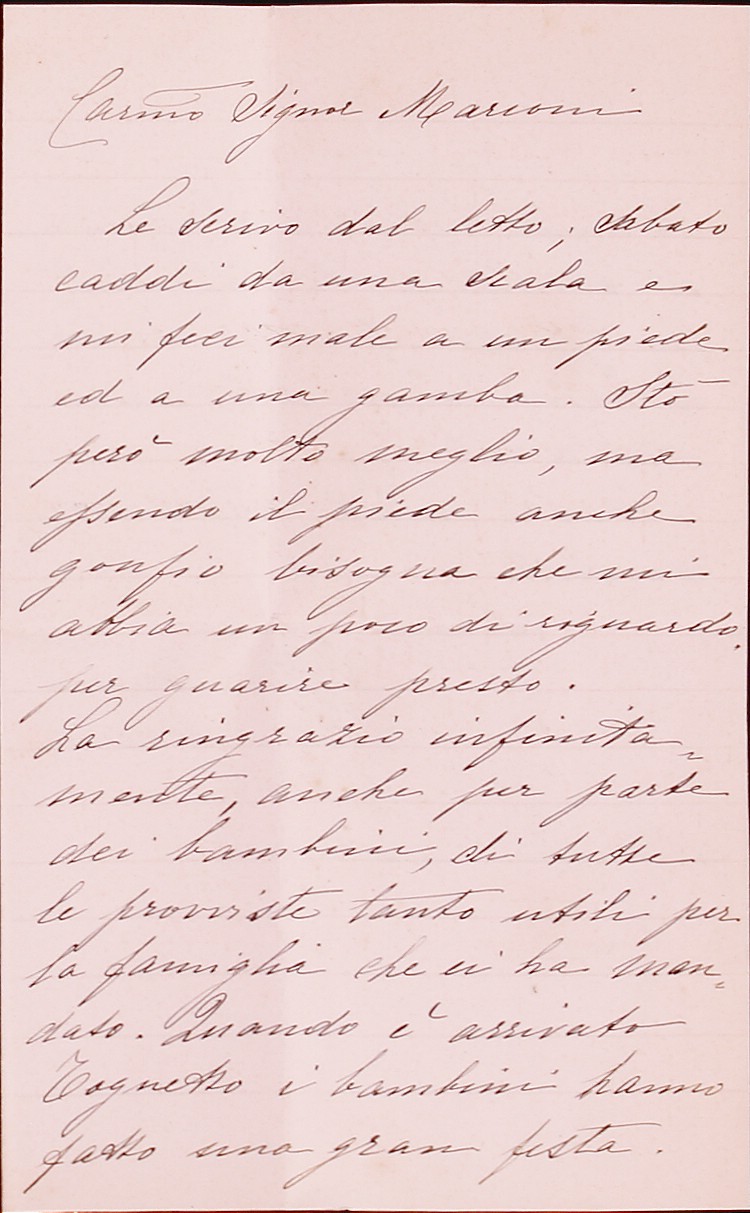 Carmo Signor Marconi
Le scrivo dal letto; sabato
caddi da una scala e
mi feci male a un piede
ed a una gamba. Stò
però molto meglio, ma
essendo il piede anche
gonfio bisogna che mi
abbia un poco di riguardo
per guarire presto.
La ringrazio infinita=
mente, anche per parte
dei bambini, di tutte
le provviste tanto utili per
la famiglia che ci ha man=
dato. Quando è arrivato
Tognetto i bambini hanno
fatto una gran festa.